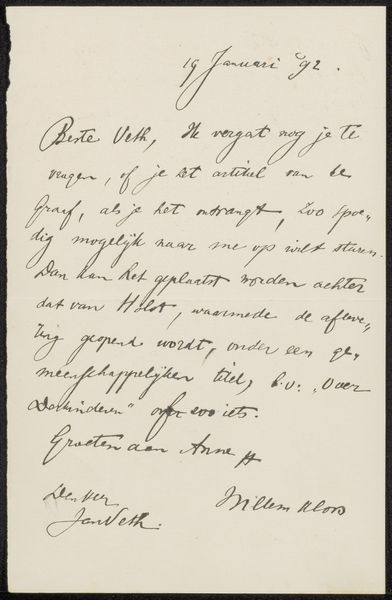 19 Januari '92.
Beste Veth, Ik vergat nog je te
vragen, of je het artikel van de
Graaf, als je het ontvangt, zoo spoe-
dig mogelijk naar me op wilt sturen.
Dan kan het geplaatst worden achter
dat van Holst, waarmede de afleve-
ring geopend wordt, onder een ge-
meenschappelijken titel, b.v. „Over
Derkinderen" of zoo iets.
Groeten aan Anna
Willem Kloos
Den Heer
Jan Veth.